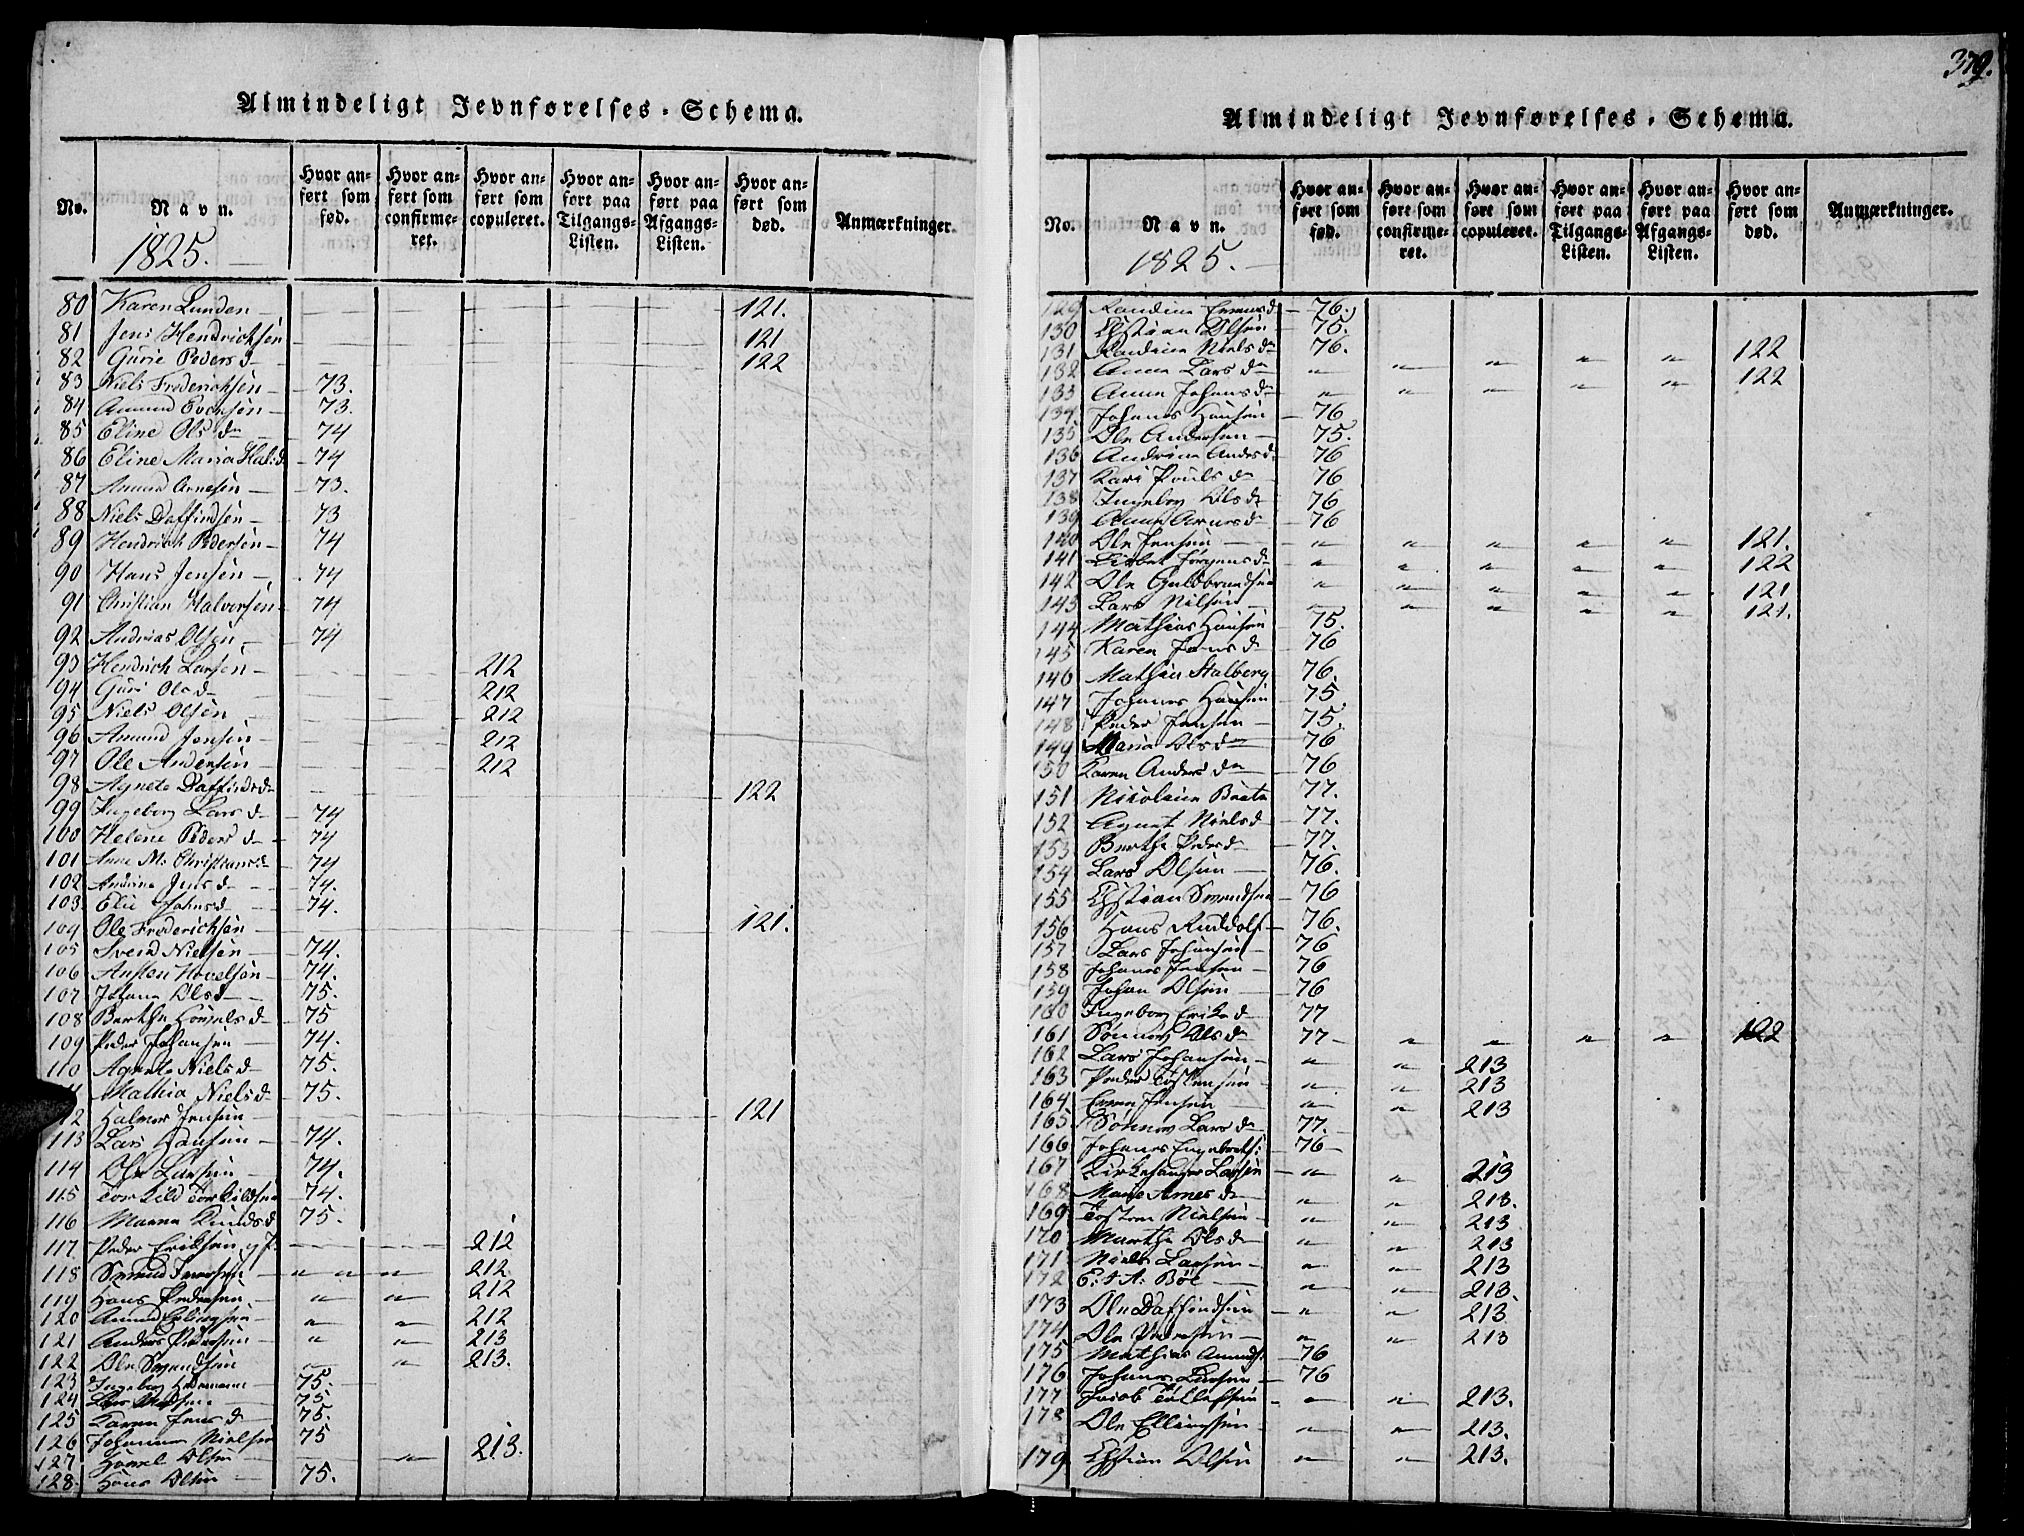 Almindeligt Jevnførelses-Schema.
No. Navn. Hvor anført som fød. Hvor anført som confirmeret. Hvor anført som copuleret. Hvor anført paa Tilgangs-Listen. Hvor anført paa Afgangs-Listen. Hvor anført som død. Anmærkninger.
1825.
80 Karen Lunden 121.
81 Jens Hendrichsen 121
82 Gurie Peders d 122
83 Niels Frederichsen 73.
84 Amund Evensen 73.
85 Eline Ols dr 74
86 Eline Maria Hal: d 74
87 Amund Arnesen 73.
88 Niels Daffindsen 73
89 Hendrich Pedersen 74
90 Hans Jensen 74
91 Christian Halvorsen 74
92 Andreas Olsen 74
93 Hendrich Larsen 212
94 Guri Ols d 212
95 Niels Olsen 212
96 Amund Jensen 212
97 Ole Andersen 212
98 Agnete Daffinds d 122
99 Ingeborg Lars d 74
100 Helene Peders d 74
101 Anne M: Christians d 74
102 Andrine Jens d 74.
103. Elie Johns d 74.
104 Ole Frederichsen 121.
105 Svend Nielsen 74.
106 Austen Hovelsen 74.
107 Johana Ols d 75.
108 Berthe Hovels d 75
109 Peder Johansen 74.
110 Agnete Niels d 75.
Mathia Niels d 75.
12 Halmor Jensen 121
113 Lars Hansen 74.
114 Ole Larsen 74.
115 Torkild Torkildsen 74.
116 Maren Knuds d 75.
117 Peder Eriksen 212
118 212
119 Hans Pedersen 212
120 Amund 212
121 Anders Pedersen 213
122 Ole 213.
123 Ingeborg 75.
124 75
125 Karen Jens d 75.
126 Johannes Nielsen 75
127 Hovel Olsen 213.
128. Hans Olsen 75.
379.
Almindeligt Jevnførelses-Schema.
No. Navn. Hvor anført som fød. Hvor anført som confirmeret. Hvor anført som copuleret. Hvor anført paa Tilgangs-Listen. Hvor anført paa Afgangs-Listen. Hvor anført som død. Anmærkninger.
1825.
129 76.
130 Olsen 75.
131 Niels dr 76.
132 Anne Lars dr 122
133 Anne Johans dr 122
134 Johanes Hansen 76
135 Ole Andersen 75.
136 Andrine Anders d 76
137 Kari Pouls dr 76
138 Ingeborg Ols dr 76
139 Anne Arnes d 76
140 Ole Jensen 121.
141 Lisbet Jørgens d 122
142 Ole Guldbrandsen 121
143 Lars Nilsen 121.
144 Mathias Hansen 75.
145 Karen Jens d 76
146 Mathias Stalberg 76.
147 Johanes Hansen 75
148 Peder Jensen 75.
149 Maria Ols dr 76
150 Karen Anders dr 76
151 Nikoline Beate 77.
152 Agnet Niels d 77.
153 Berthe Peders d 77.
154 Lars Olsen 76.
155 76
156 Hans Ruddolf 76.
157 Lars Johansen 76
158 Johanes Jensen 76
159 Johan Olsen 76
160 Ingeborg Eriks d 77
161 Sønnov Ols d 77 122
162 Lars Johansen 213
163 Peder Tostensen 213
164 Jensen 213
165 Sønnov Lars d 77.
166 Johanes Engebrets: 76
167 Kirkesanger Larsen 213
168 Marie Arnes d 213.
169 Tosten Nielsen 213
170 Marthe Ols d 213
171 Niels Larsen 213
172 E: & A: Böe 213.
173 Ole Daffindsen 213
174 Ole Pedersen 213
175 Mathias Amunds: 76
176 Johanes Larsen 76
177 Jacob Tollefsen 213.
178 Ole Ellingsen 213.
179 Olsen 213.